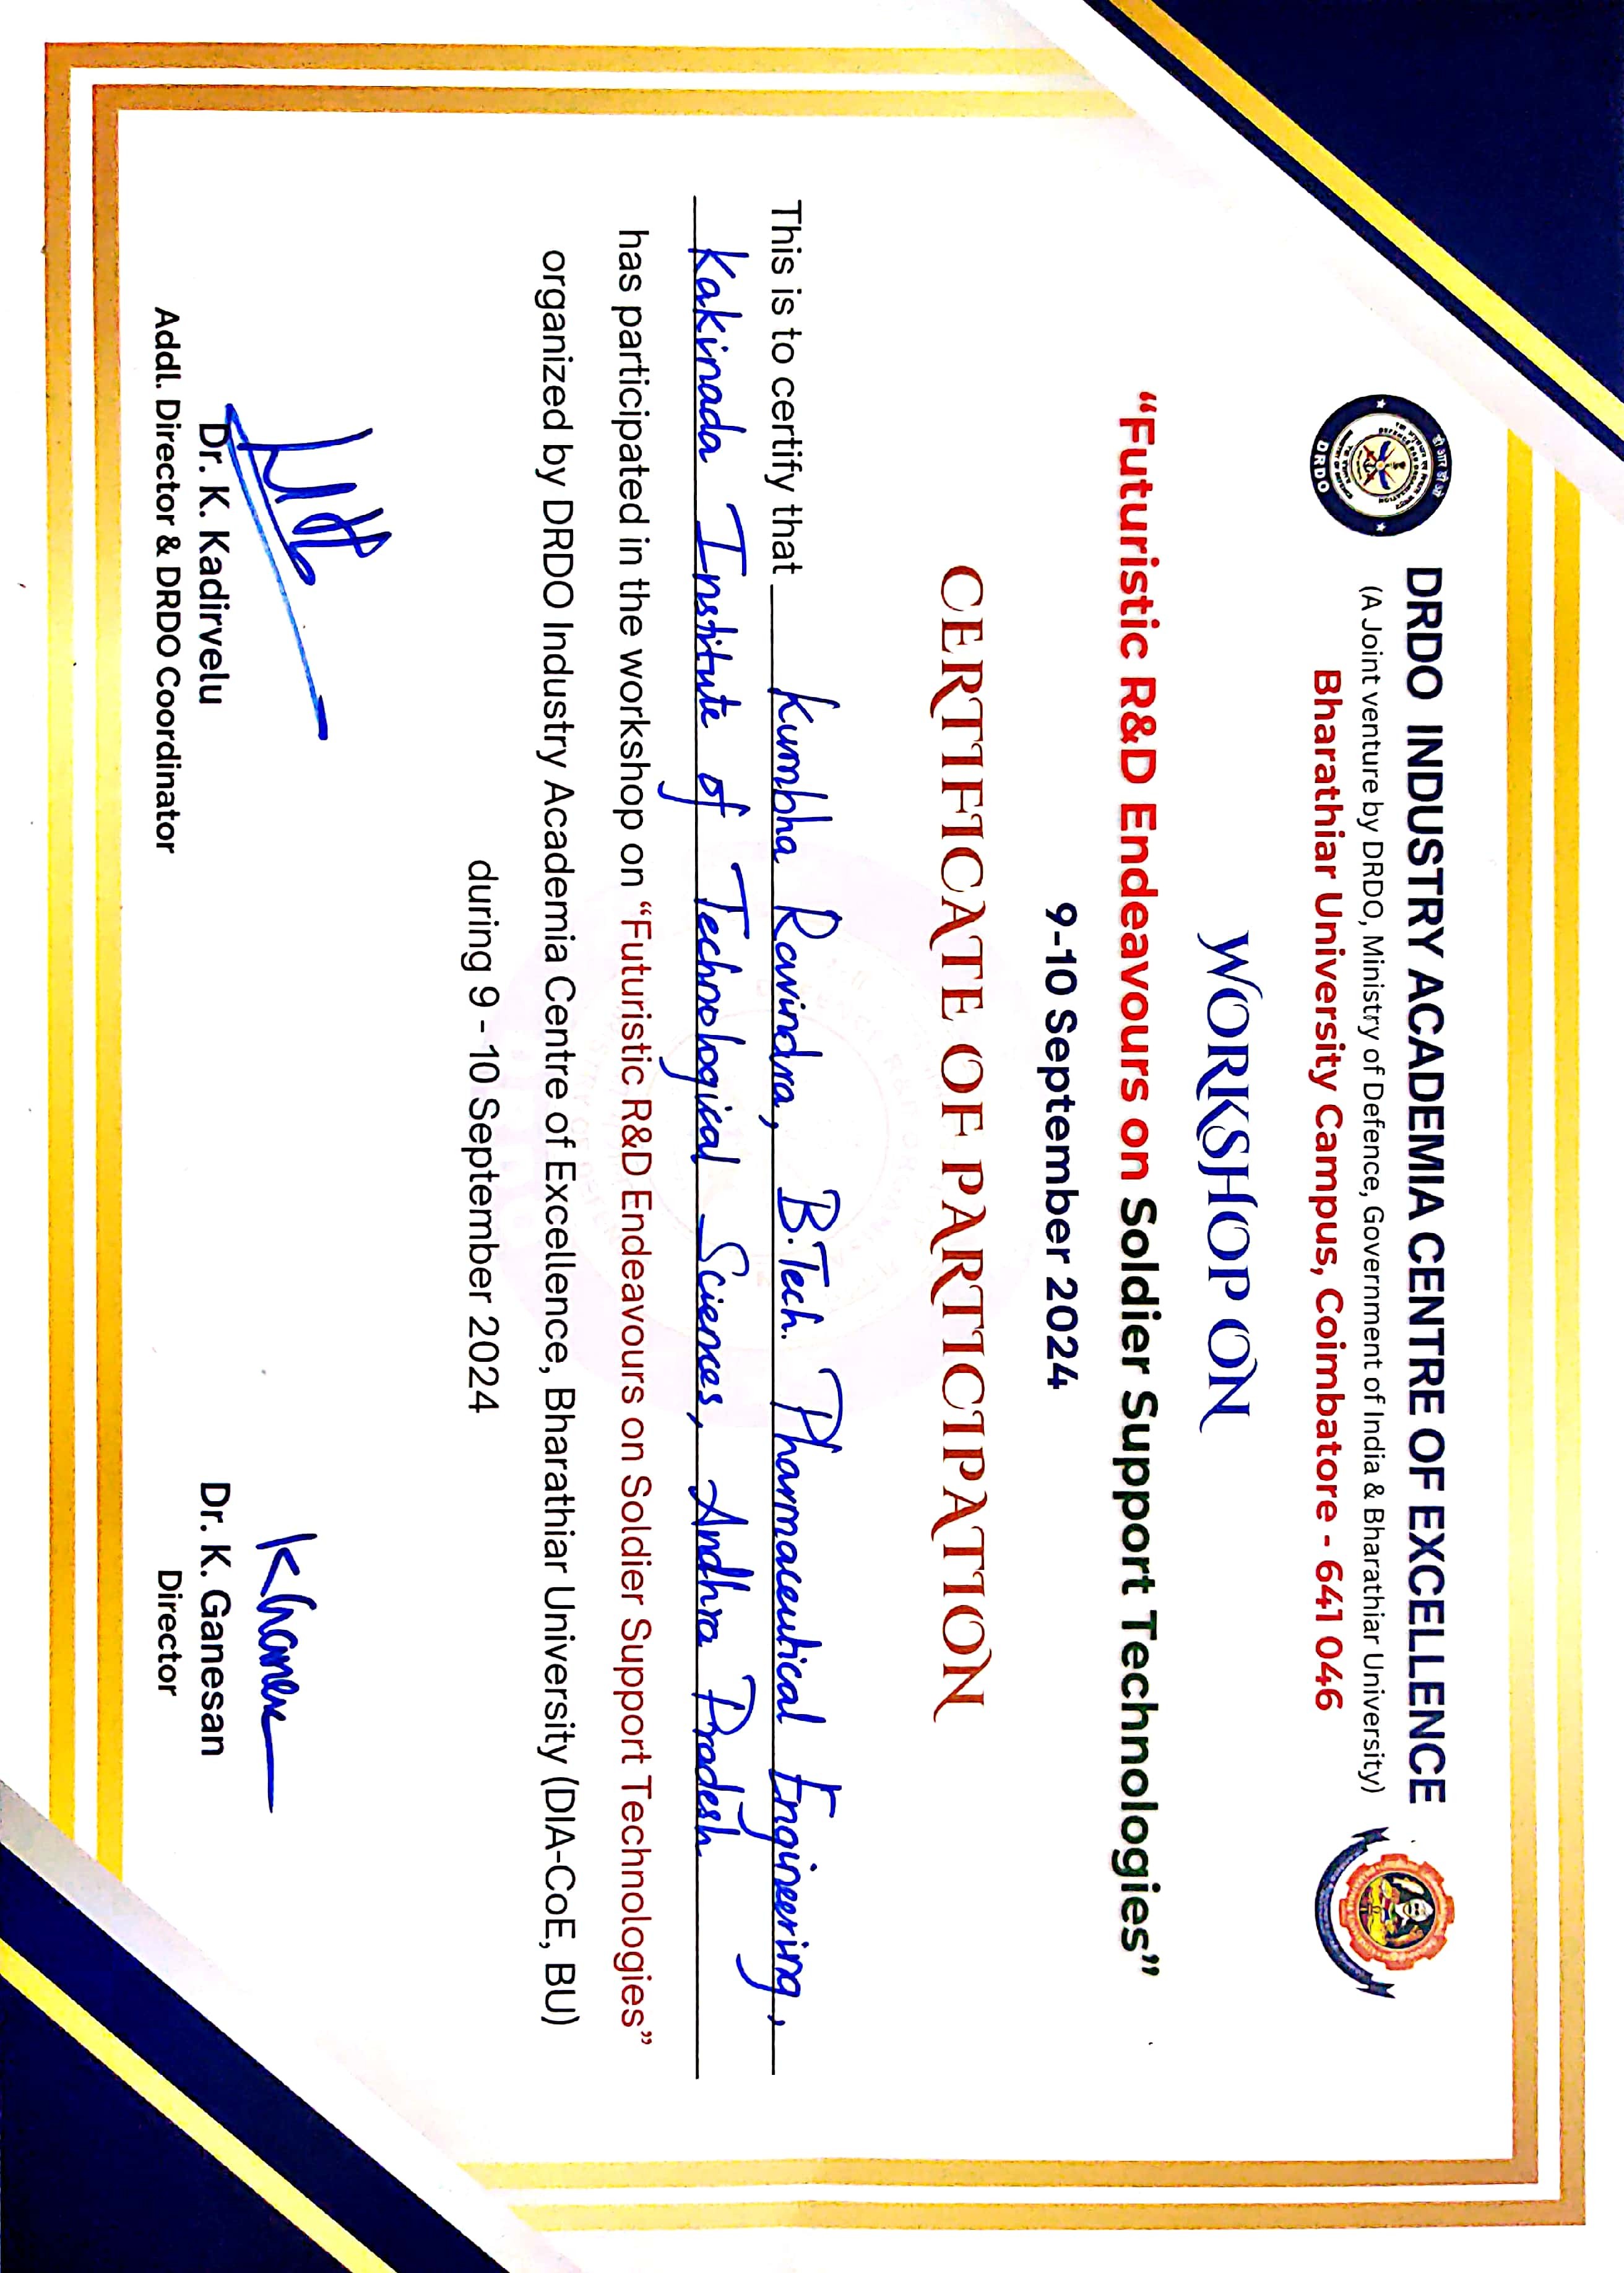 DRDO INDUSTRY ACADEMIA CENTRE OF EXCELLENCE
(A Joint venture by DRDO, Ministry of Defence, Government of India & Bharathiar University)
Bharathiar University Campus, Coimbatore - 641 046
डी आर डी ओ
DRDO
WORKSHOP ON
“Futuristic R&D Endeavours on Soldier Support Technologies”
9-10 September 2024
CERTIFICATE OF PARTICIPATION
This is to certify that Kumbha Ravindra, B.Tech. Pharmaceutical Engineering,
Kakinada Institute of Technological Sciences, Andhra Pradesh
has participated in the workshop on “Futuristic R&D Endeavours on Soldier Support Technologies”
organized by DRDO Industry Academia Centre of Excellence, Bharathiar University (DIA-CoE, BU)
during 9 - 10 September 2024
Dr. K. Kadirvelu
Addl. Director & DRDO Coordinator
Dr. K. Ganesan
Director